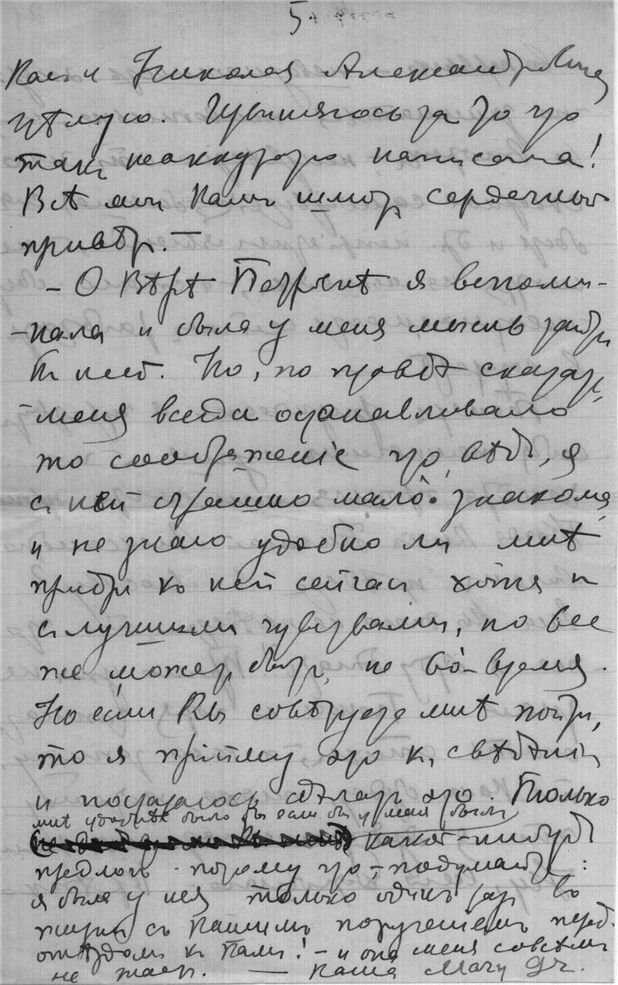 5.
Васъ и Николая Александровича
цѣлую. Извиняюсь за то что
такъ неаккуратно написала!
Всѣ мои Вамъ шлютъ сердечный
привѣтъ. —
— О Вѣрѣ Петровнѣ я вспоми-
-нала и была у меня мысль зайти
къ ней. Но, по правдѣ сказать,
меня всегда останавливало
то соображеніе что, вѣдь, я
съ ней страшно мало знакома,
и не знаю удобно ли мнѣ
придти къ ней сейчасъ хотя и
съ лучшими чувствами, но все
же можетъ быть, не во-время.
Но если Вы совѣтуете мнѣ пойти,
то я приму это къ свѣдѣнію
и постараюсь сдѣлать это. Только
мнѣ удобнѣе было бы если бы у меня былъ
какой-нибудь
предлогъ. потому что,-подумайте:
я была у нея только одинъ разъ въ
жизни съ Вашимъ порученіемъ передъ
отъѣздомъ къ Вамъ! - и она меня совсѣмъ
не знаетъ. — Ваша